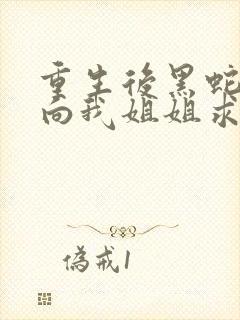 重生後黑蛇
向我姐姐求
偽戒1